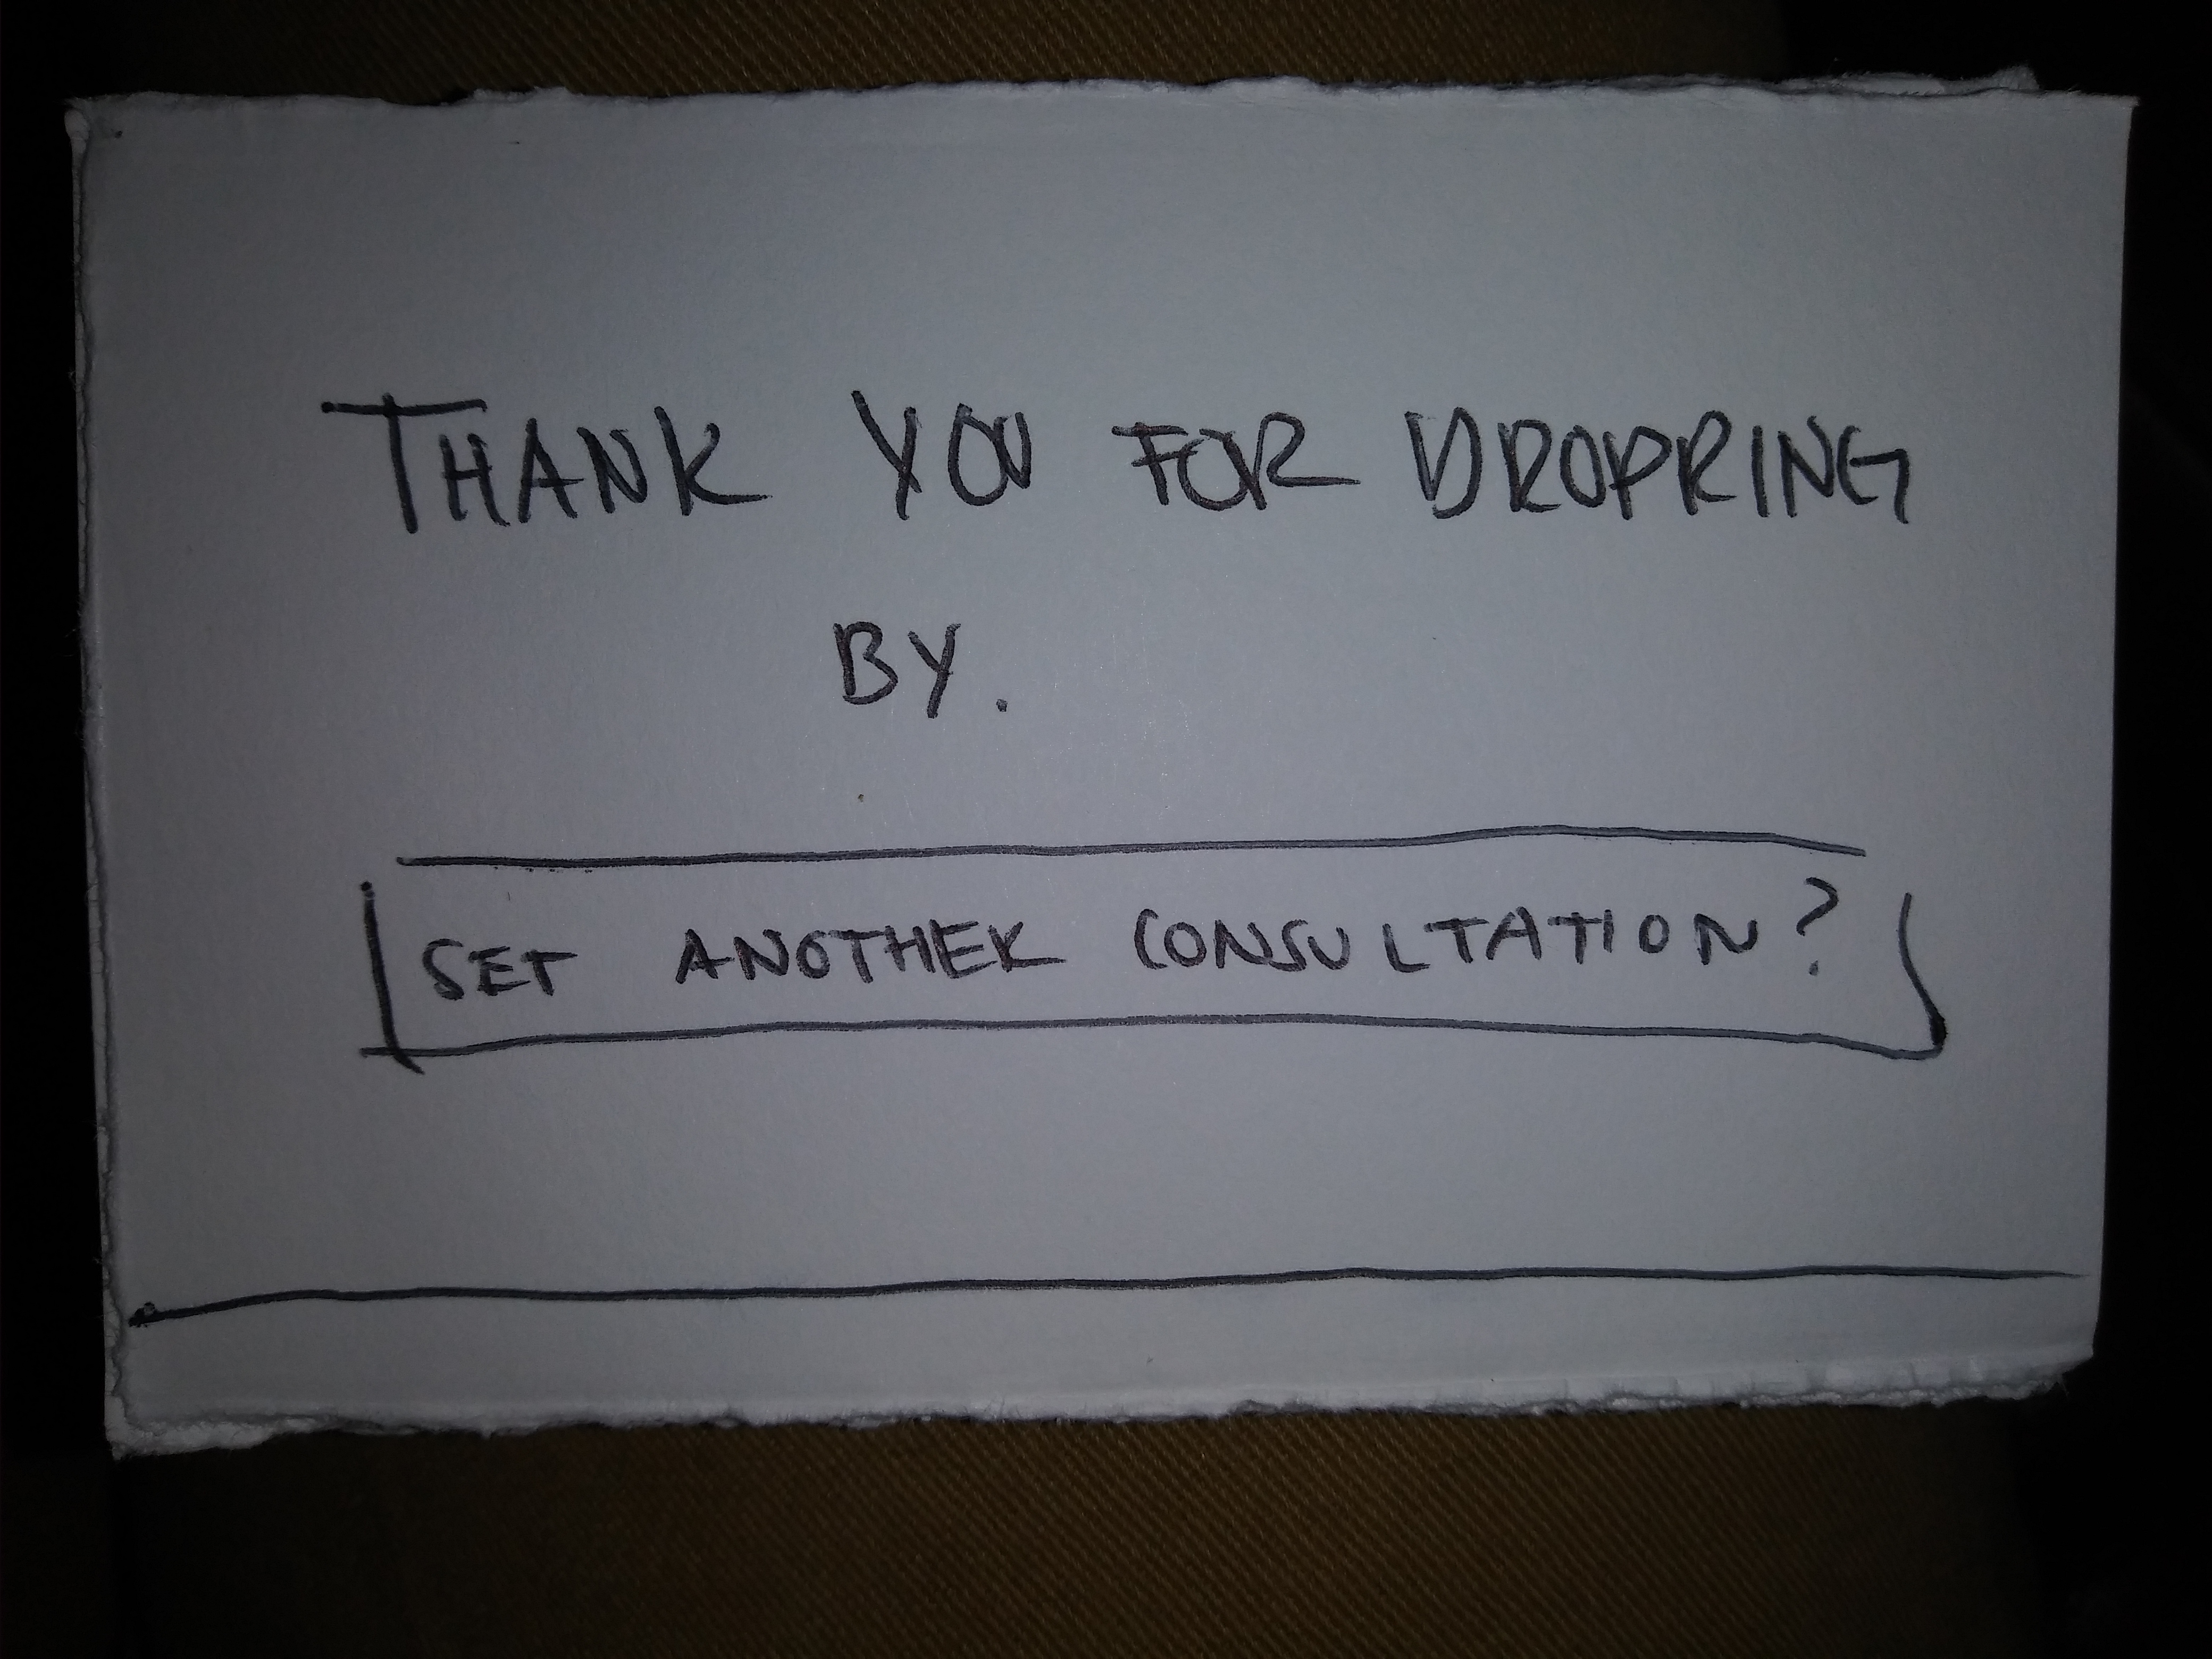 THANK YOU FOR DROPPING
BY.
SET ANOTHER CONSULTATION?